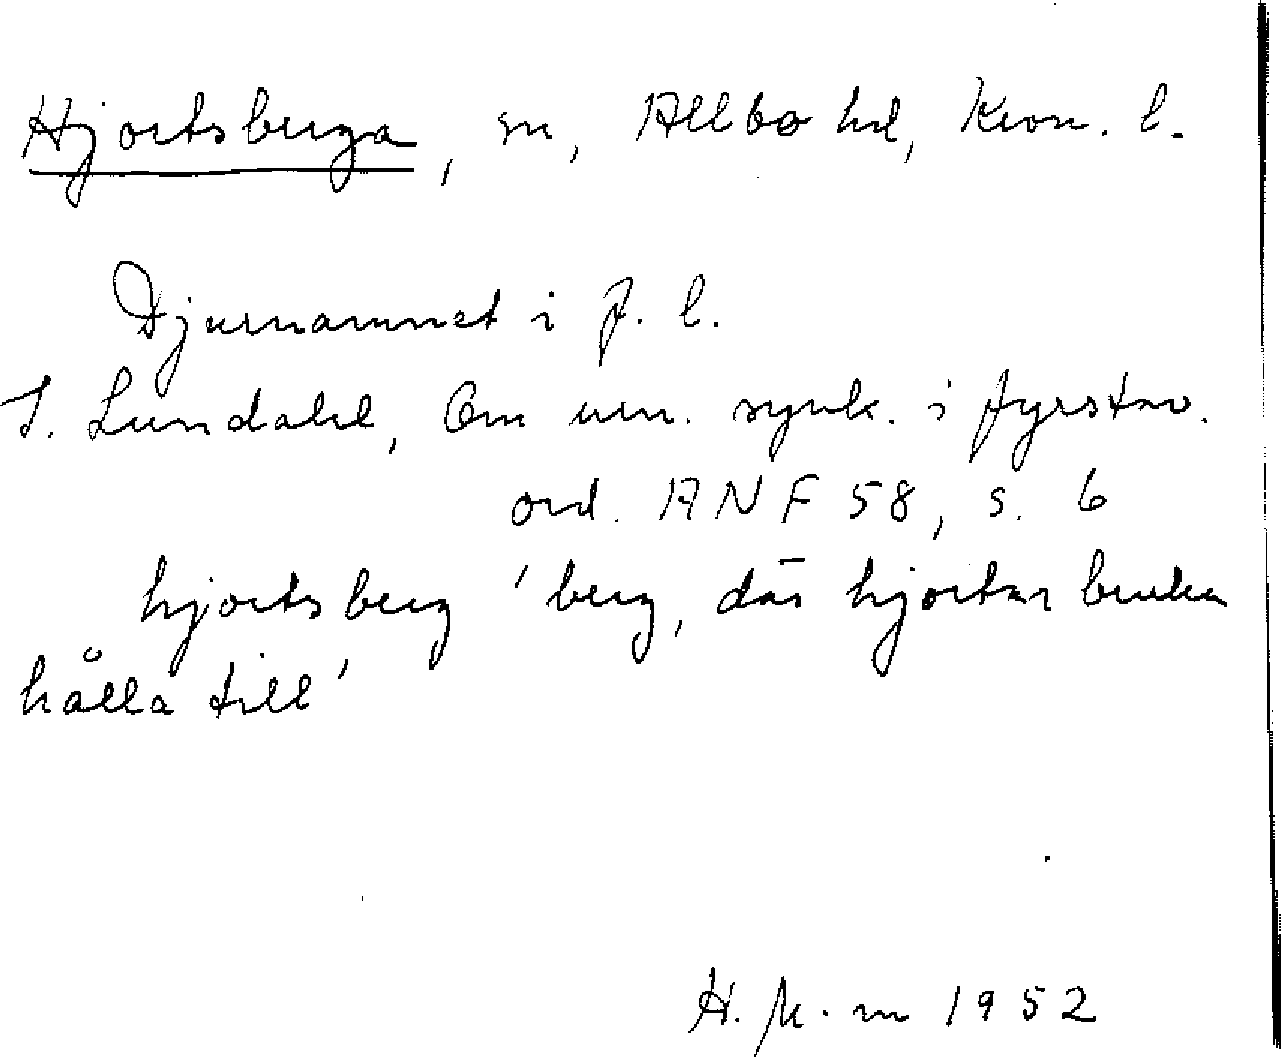 Hjortsberga, sn, Allbo hd, Kron. l.
Djurnamnet i f. l.
I. Lundahl, Om urn. synk. i fyrstav.
ord. ANF 58, s. 6
hjortsberg 'berg, där hjortar bruka
hålla till'
H. M-m 1952